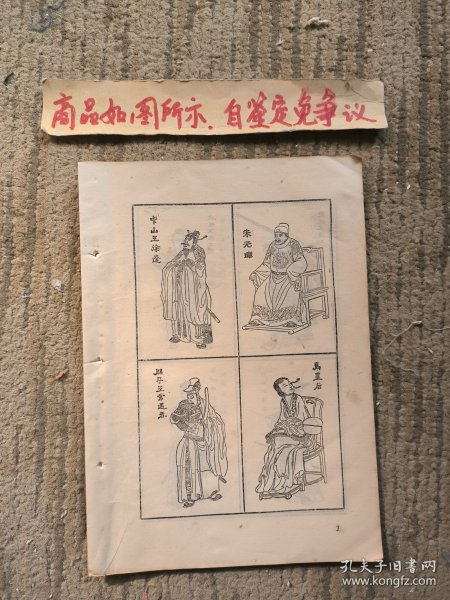 商品如图所示.自鉴定免争议
朱元璋
中山王徐达
馬皇后
開平王常遇春
1
孔夫子旧书网
www.kongfz.com